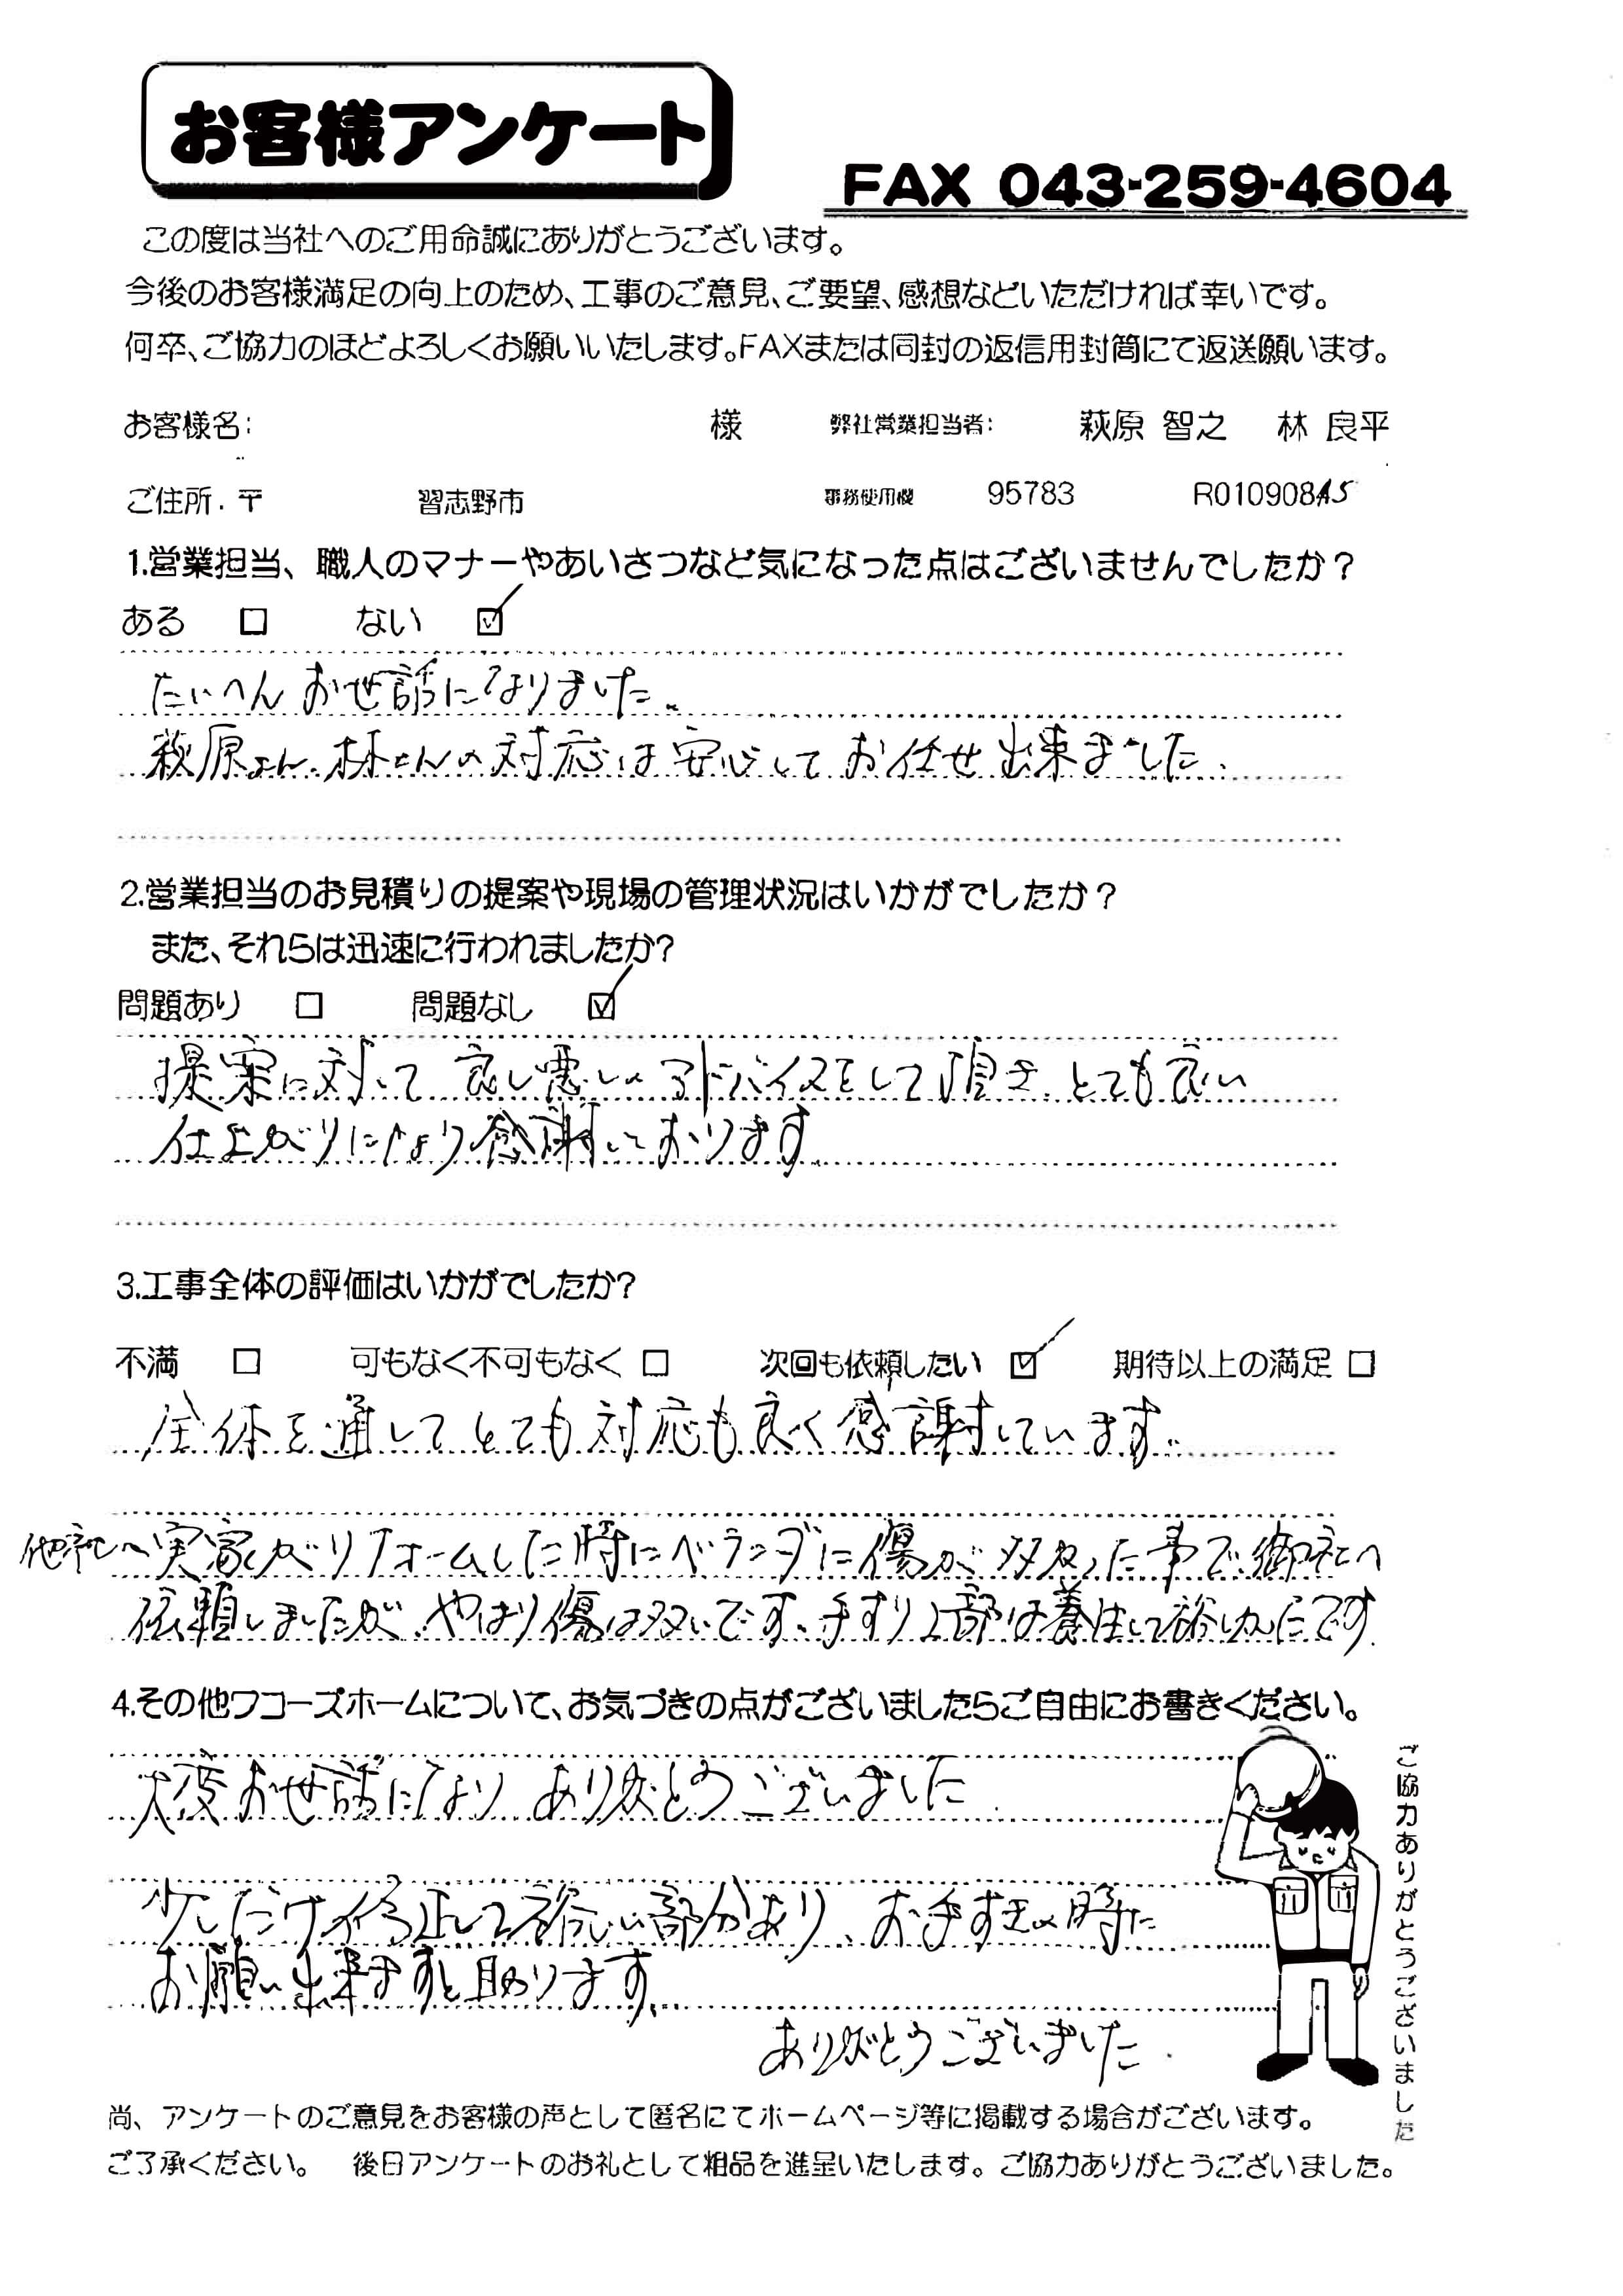 お客様アンケート
FAX 043-259-4604
この度は当社へのご用命誠にありがとうございます。
今後のお客様満足の向上のため、工事のご意見、ご要望、感想などいただければ幸いです。
何卒、ご協力のほどよろしくお願いいたします。FAXまたは同封の返信用封筒にて返送願います。
お客様名: 様 弊社営業担当者: 萩原 智之 林 良平
ご住所. 〒 習志野市 事務使用欄 95783 R010908AS
1.営業担当、職人のマナーやあいさつなど気になった点はございませんでしたか？
ある □ ない ☑
たいへんお世話になりました。
萩原さん、林さんの対応は安心してお任せ出来ました.
2.営業担当のお見積りの提案や現場の管理状況はいかがでしたか？
また、それらは迅速に行われましたか?
問題あり □ 問題なし ☑
提案に対して良し悪しのアドバイスをして頂き、とても良い
仕上がりになり感謝しております
3.工事全体の評価はいかがでしたか?
不満 □ 可もなく不可もなく □ 次回も依頼したい ☑ 期待以上の満足 □
全体を通してとても対応も良く感謝しています。
他社へ実家がリフォームした時にベランダに傷が多かった事で御社へ
依頼しましたが、やはり傷は多いです、手すり上部は養生して欲しかったです.
4.その他ワコーズホームについて、お気づきの点がございましたらご自由にお書きください。
大変お世話になり ありがとうございました.
少しだけ修正して欲しい部分あり、お手すきの時に
お願い出来ますと助ります。
ありがとうございました.
ご協力ありがとうございました
尚、アンケートのご意見をお客様の声として匿名にてホームページ等に掲載する場合がございます。
ご了承ください。 後日アンケートのお礼として粗品を進呈いたします。ご協力ありがとうございました。